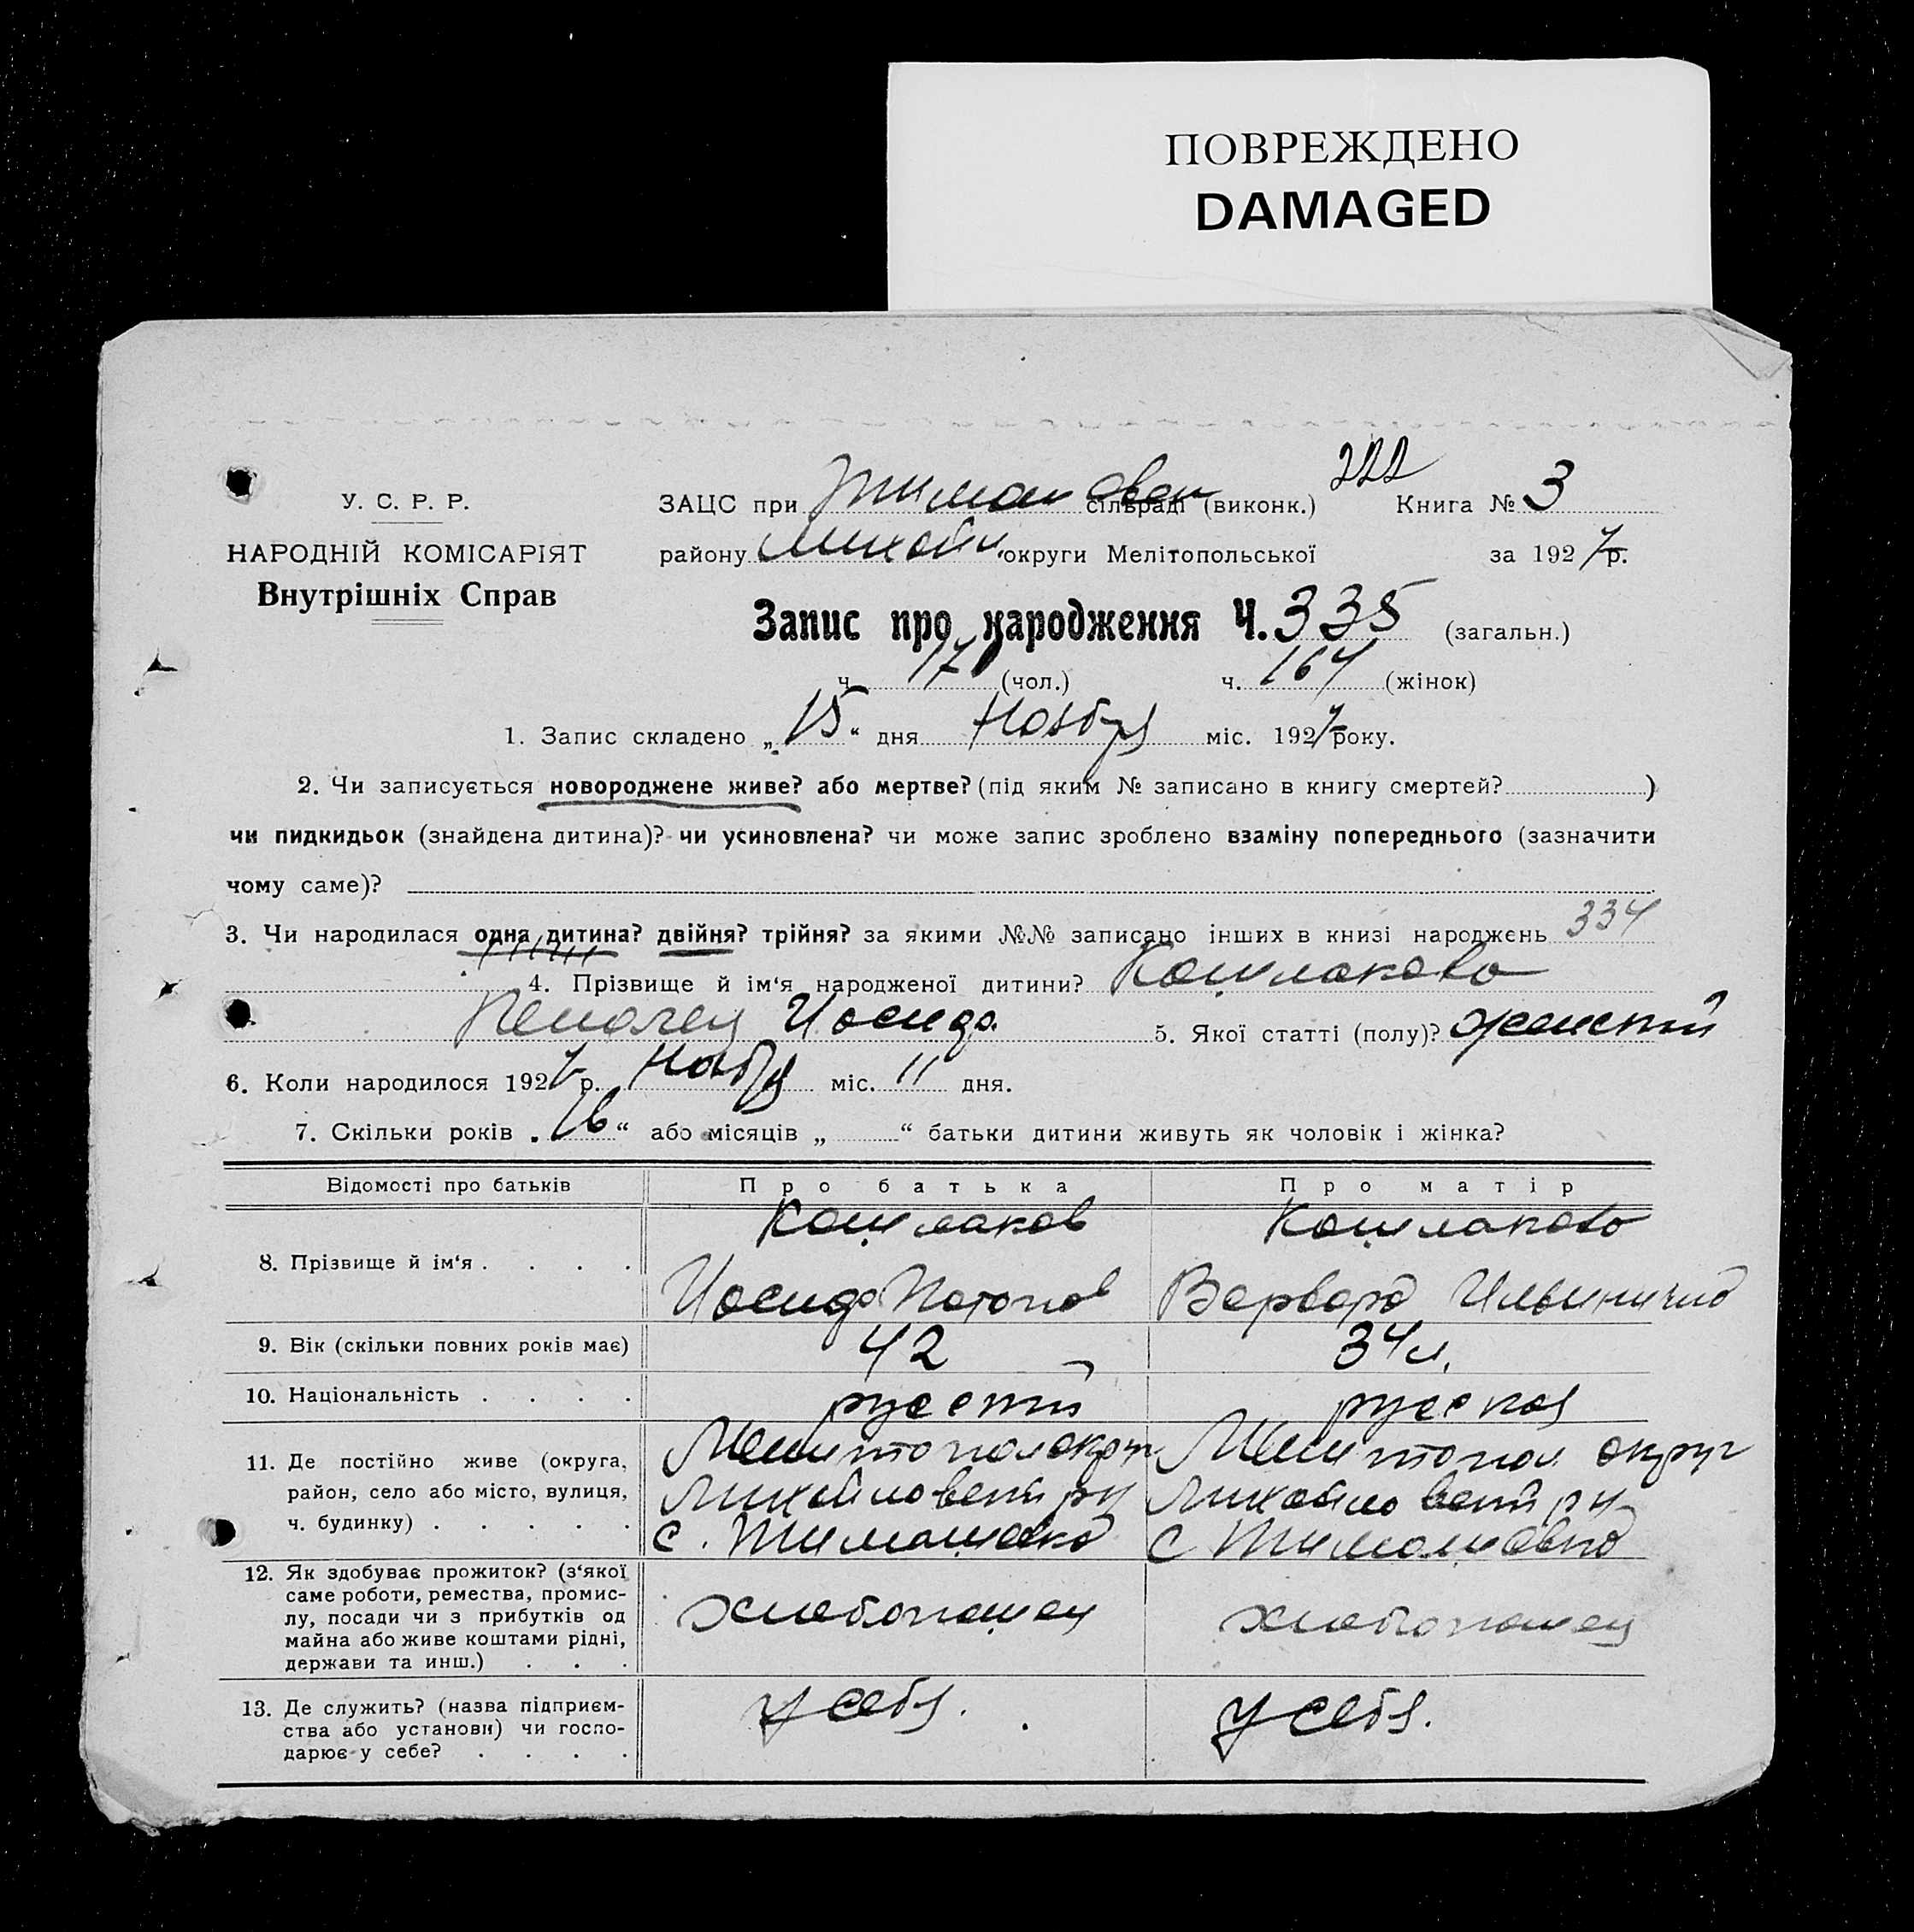 ПОВРЕЖДЕНО
DAMAGED
222
У. С. Р. Р.
НАРОДНІЙ КОМІСАРІЯТ
Внутрішніх Справ
ЗАЦС при сільраді (виконк.) Книга № 3
району Михайл. округи Мелітопольської за 1927 р.
Запис про народження Ч. 335 (загальн.)
ч. 17 (чол.) ч. 164 (жінок)
1. Запис складено „15“ дня Ноября міс. 1927 року.
2. Чи записується новороджене живе? або мертве? (під яким № записано в книгу смертей? )
чи пидкидьок (знайдена дитина)? чи усиновлена? чи може запис зроблено взаміну попереднього (зазначити
чому саме)?
3. Чи народилася одна дитина? двійня? трійня? за якими №№ записано інших в книзі народжень 334
4. Прізвище й ім‘я народженої дитини? Кошлакова
Иосифа 5. Якої статті (полу)? женский
6. Коли народилося 1927 р. Ноября міс. 11 дня.
7. Скільки років „16“ або місяців „ “ батьки дитини живуть як чоловік і жінка?
Відомості про батьків Про батька Про матір
8. Прізвище й ім‘я . . . . Кошлаков Кошлакова
Иосиф Потапов Варвара Ильинична
9. Вік (скільки повних років має) 42 34 л.
10. Національність . . . . русский русская
11. Де постійно живе (округа, Мелитопол округ Мелитопол округ
район, село або місто, вулиця, Михайловский р-н Михайловский р-н
ч. будинку) . . . . . с. Тимашовка с Тимашовка
12. Як здобуває прожиток? (з‘якої
саме роботи, ремества, промис-
лу, посади чи з прибутків од хлебопашец хлебопашец
майна або живе коштами рідні,
держави та инш.) . . .
13. Де служить? (назва підприєм- у себя. у себя.
ства або установи) чи госпо-
дарює у себе? . . . .